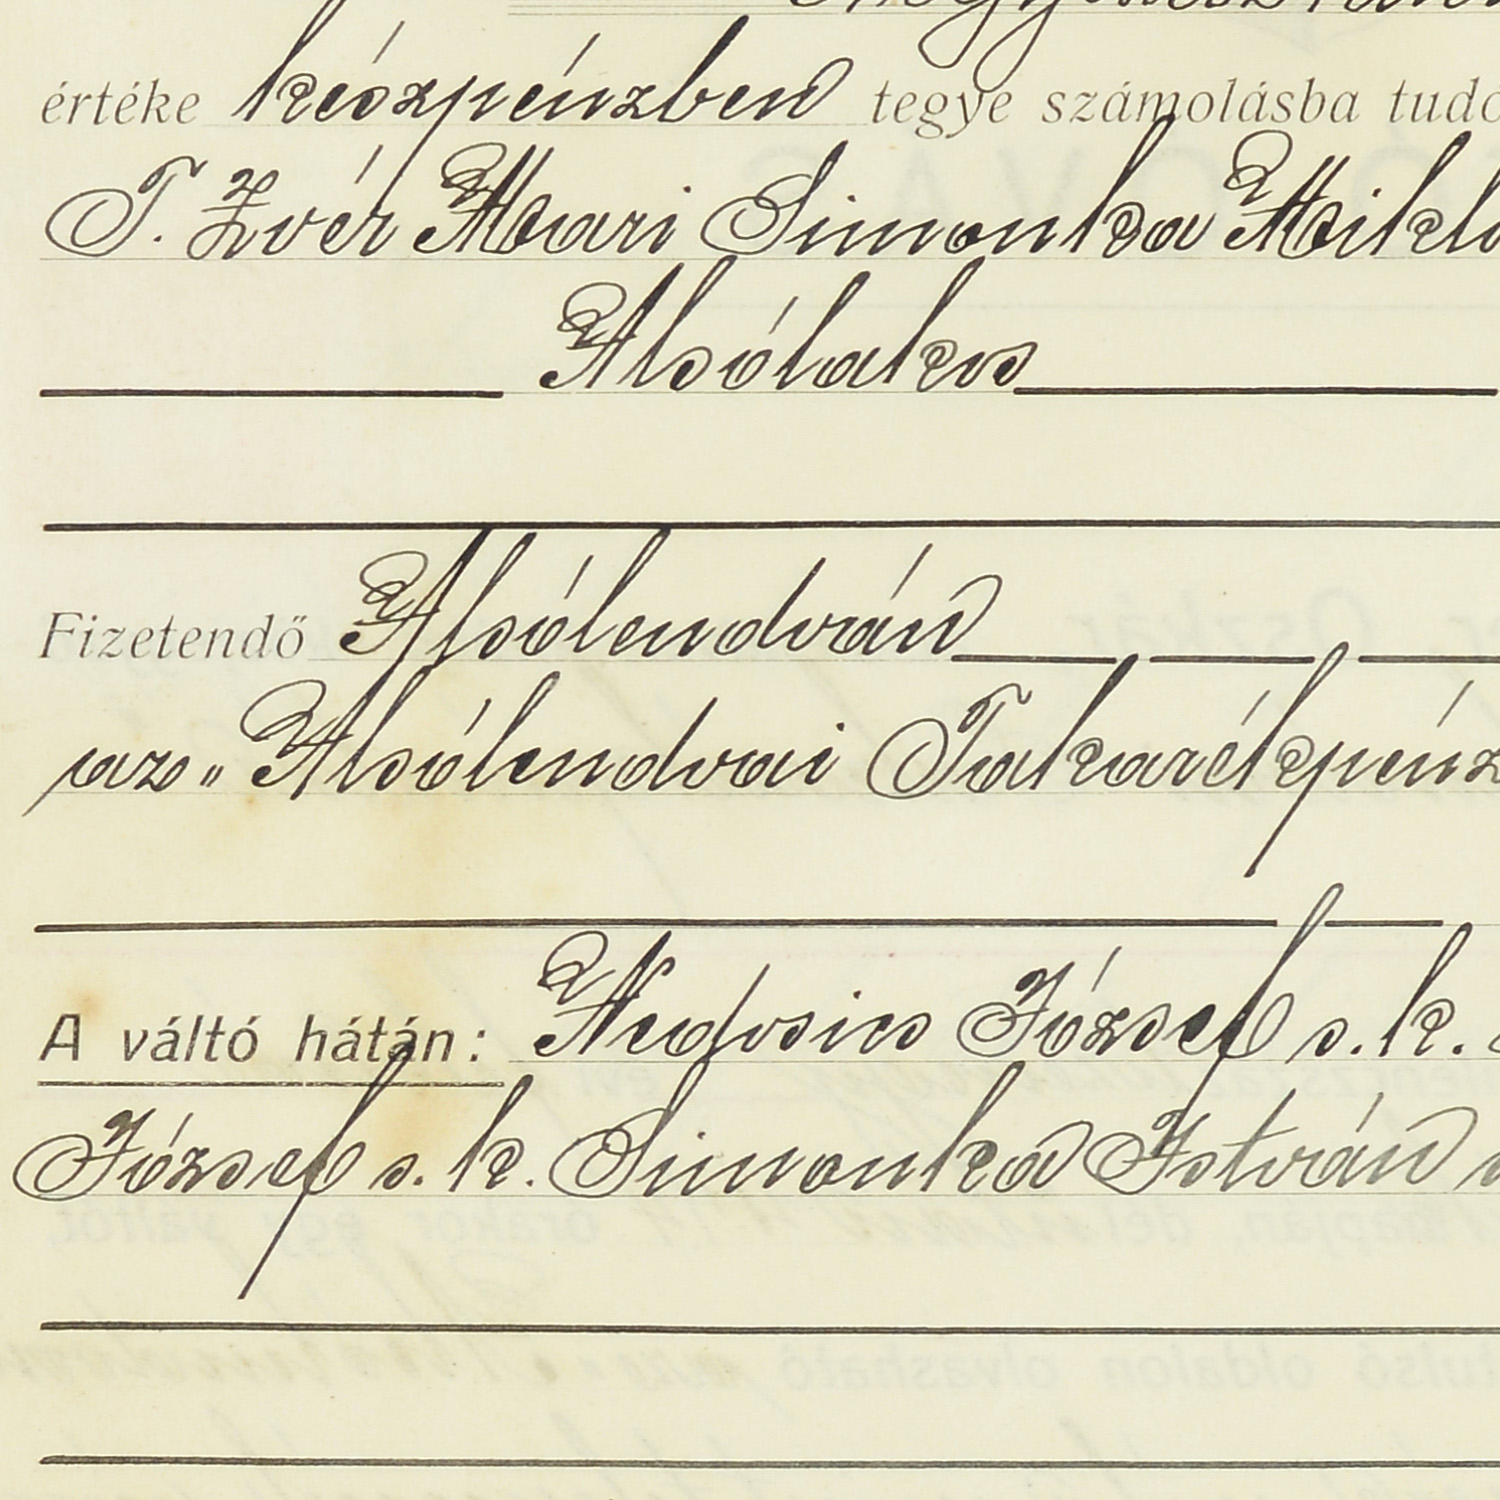 értéke készpénzben tegye számolásba tudo
T. Zvér Mari Simonka Mikló
Alsólakos
Fizetendő Alsólendván
az „Alsólendvai Takarékpénz
A váltó hátán: Nedosics József s. k.
József s. k. Simonka István s